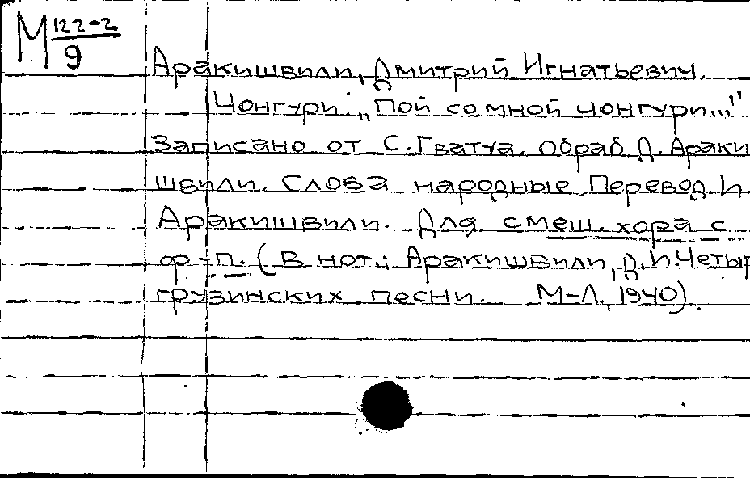 М 122-2
9
Аракишвили, Дмитрий Игнатьевич.
Чонгури: „Пой со мной чонгури..."
Записано от С. Гватуа. обраб Д. Араки
швили. Слова народные Перевод И
Аракишвили. Для смеш. хора с
ф-п. (В нот.: Аракишвили, Д. И. Четыр
грузинских песни. М-Л, 1940).